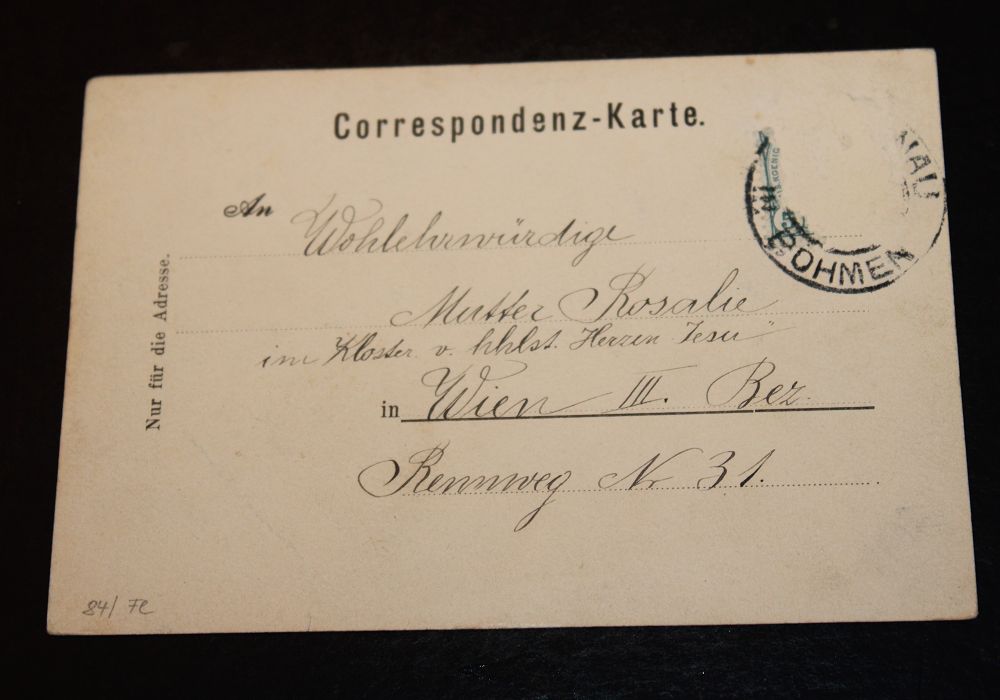 Correspondenz-Karte.
An Wohlehrwürdige
Mutter Rosalie
im Kloster v. hhlst. Herzen Jesu"
in Wien III. Bez.
Rennweg Nr 31.
Nur für die Adresse.
NAU
BÖHMEN
84/ FC